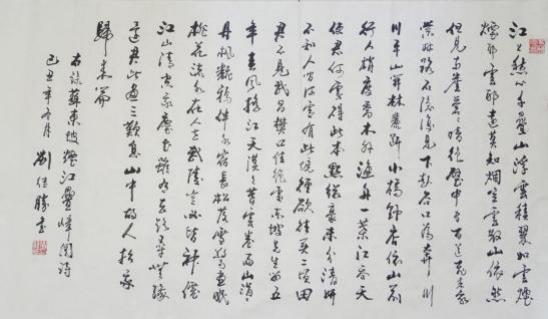 江上愁心千疊山浮雲積翠如雲煙
煙耶雲耶遠莫知烟空雲散山依然
但見兩崖蒼蒼暗絕壑中有百道飛來泉
縈林絡石隱復見下赴谷口為奔川
川平山開林麓斷小橋野店依山前
行人稍度喬木外漁舟一葉江吞天
使君何處得此本點綴毫末分清妍
不知人間何處有此境徑欲往買二頃田
君不見武昌樊口佳絕處東坡先生留五
年春風搖江天漠漠暮雲卷雨山涓涓
丹楓翻鴉伴水宿長松落雪驚晝眠
桃花流水在人世武陵豈必皆神僊
江山清空我塵土雖有去路尋無緣
還君此畫三歎息山中故人招我
歸來篇
右錄蘇東坡煙江疊嶂圖詩
己丑年月
劉勝書